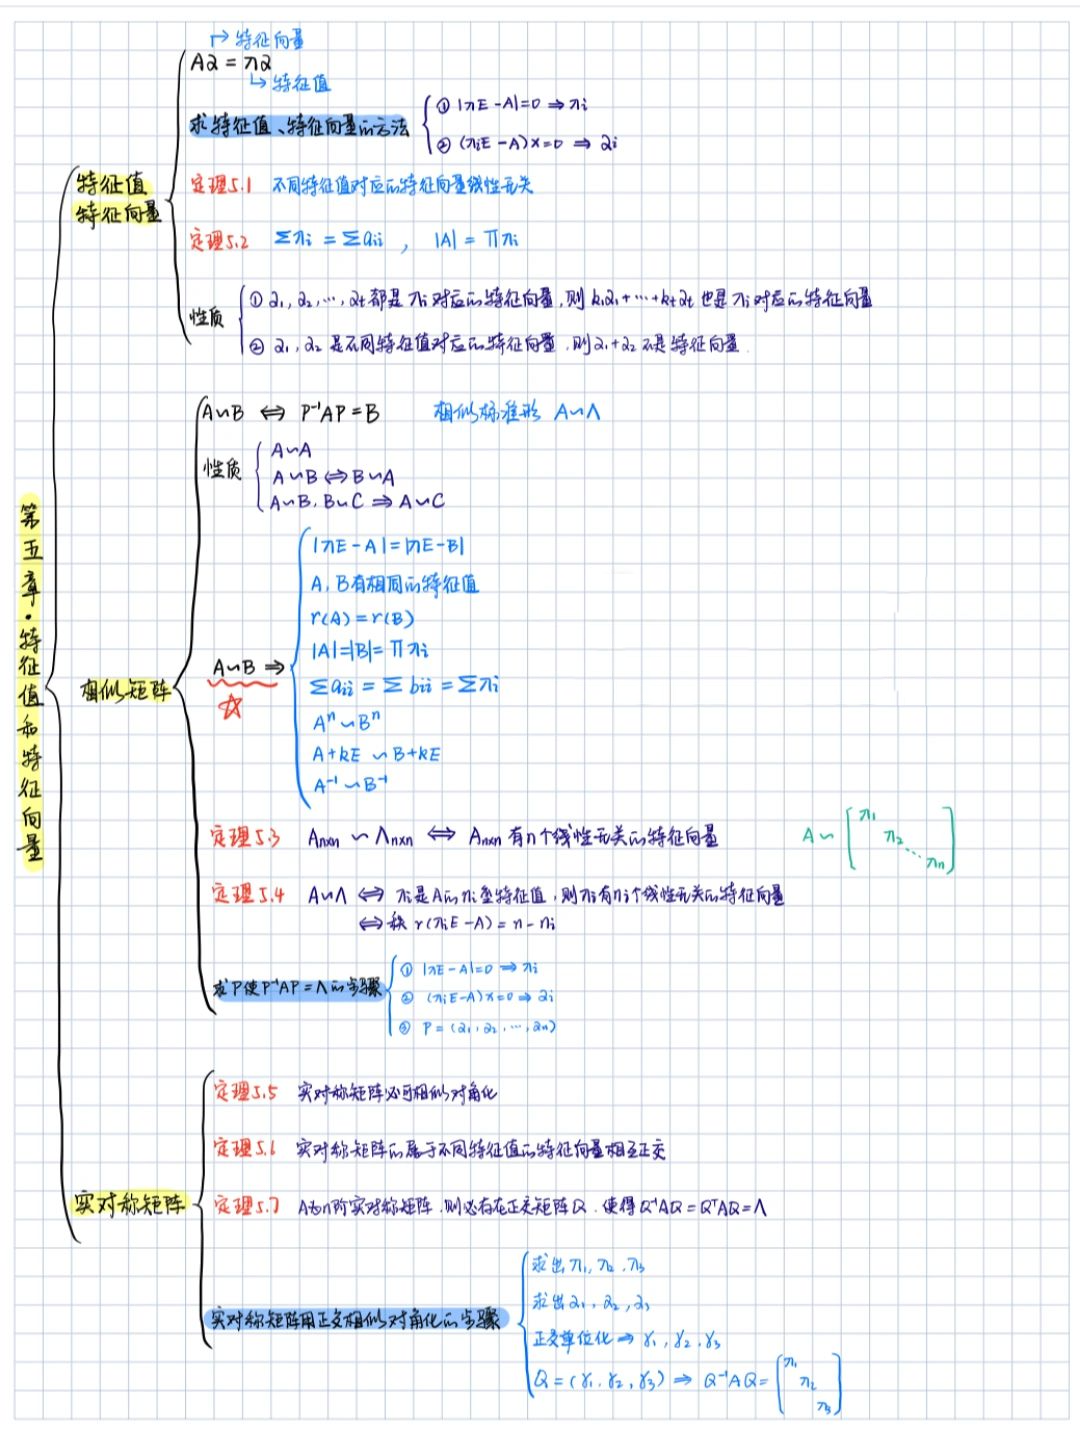 第五章·特征值和特征向量
特征值
特征向量
→特征向量
Aα = λα
↳特征值
求特征值、特征向量的方法
① |λE-A|=0 ⇒ λi
② (λiE-A)x=0 ⇒ αi
定理5.1 不同特征值对应的特征向量线性无关
定理5.2 Σλi = Σaii , |A| = Πλi
性质
① α₁,α₂,…,αt都是λi对应的特征向量,则k₁α₁+…+ktαt也是λi对应的特征向量
② α₁,α₂是不同特征值对应的特征向量,则α₁+α₂不是特征向量.
相似矩阵
A∽B ⇔ P⁻¹AP=B 相似标准形 A∽Λ
性质
A∽A
A∽B ⇔ B∽A
A∽B,B∽C ⇒ A∽C
A∽B ⇒
|λE-A|=|λE-B|
A,B有相同的特征值
r(A)=r(B)
|A|=|B|=Πλi
Σaii = Σbii = Σλi
Aⁿ∽Bⁿ
A+kE ∽ B+kE
A⁻¹∽B⁻¹
定理5.3 Anxn ∽ Λnxn ⇔ Anxn有n个线性无关的特征向量
A∽ [λ₁ λ₂ … λn]
定理5.4 A∽Λ ⇔ λi是A的ni重特征值,则λi有ni个线性无关的特征向量
⇔ 秩 r(λiE-A)=n-ni
求P使P⁻¹AP=Λ的步骤
① |λE-A|=0 ⇒ λi
② (λiE-A)x=0 ⇒ αi
③ P=(α₁,α₂,…,αn)
实对称矩阵
定理5.5 实对称矩阵必可相似对角化
定理5.6 实对称矩阵的属于不同特征值的特征向量相互正交
定理5.7 A为n阶实对称矩阵,则必存在正交矩阵Q,使得Q⁻¹AQ=QᵀAQ=Λ
实对称矩阵用正交相似对角化的步骤
求出λ₁,λ₂,λ₃
求出α₁,α₂,α₃
正交单位化 ⇒ γ₁,γ₂,γ₃
Q=(γ₁,γ₂,γ₃) ⇒ Q⁻¹AQ= [λ₁ λ₂ λ₃]